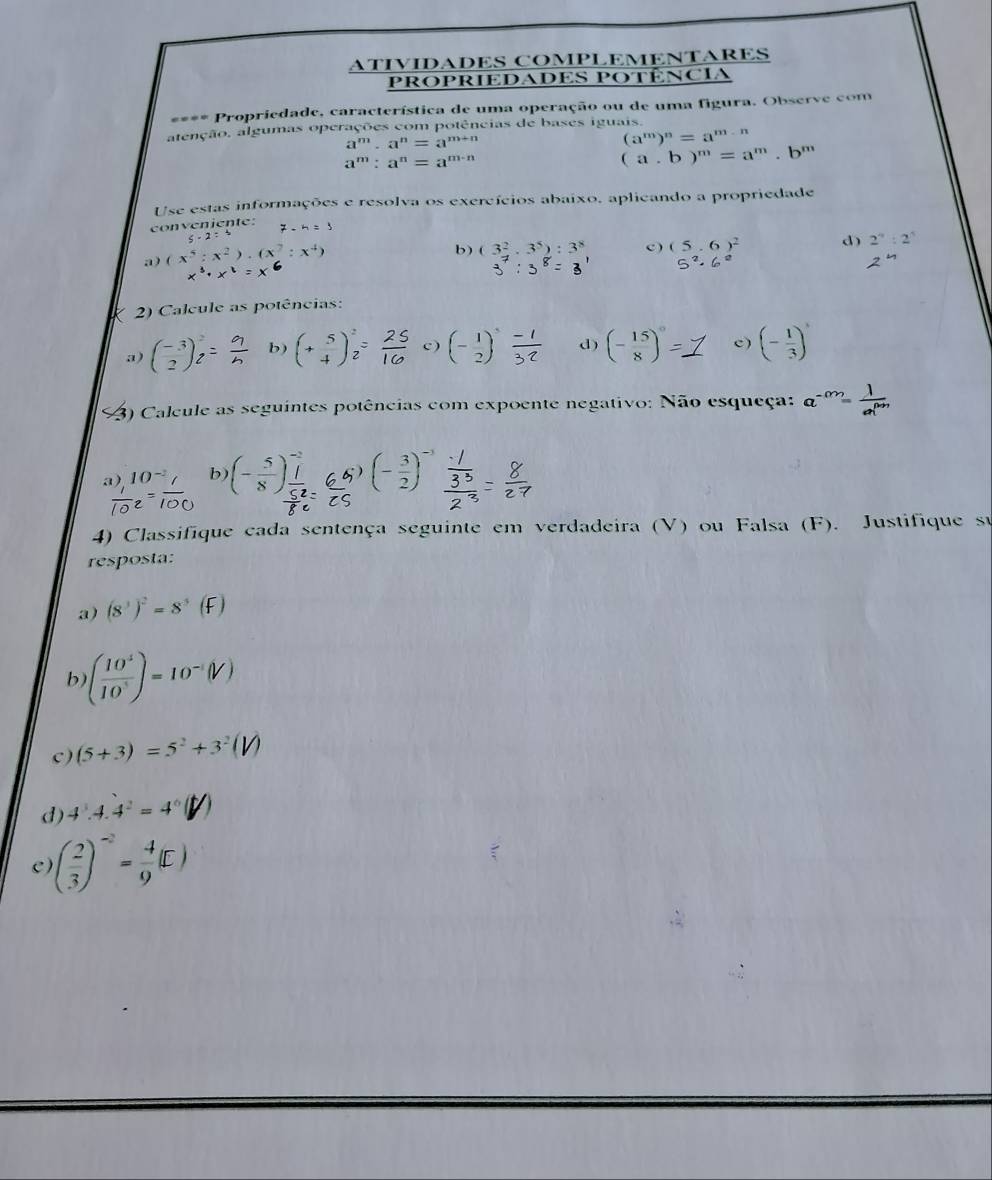 ATIVIDADES COMPLEMENTARES
PROPRIEDADES POTÊNCIA
**** Propriedade, característica de uma operação ou de uma figura. Observe com
atenção, algumas operações com potências de bases iguais.
aᵐ . aⁿ = aᵐ⁺ⁿ (aᵐ)ⁿ = aᵐ · ⁿ
aᵐ : aⁿ = aᵐ⁻ⁿ ( a . b )ᵐ = aᵐ . bᵐ
Use estas informações e resolva os exercícios abaixo, aplicando a propriedade
conveniente:
5-2=3 7-4=3
a) ( x⁵ : x² ) . (x⁷ : x⁴) b) ( 3² . 3⁵) : 3⁸ c) ( 5 . 6 )² d) 2⁹ : 2⁵
x³ . x³ = x⁶ 3⁷ : 3⁸ = 3¹ 5² . 6² 2⁴
2) Calcule as potências:
a) (-3/2)² = 9/4 b) (+5/4)² = 25/16 c) (-1/2)⁵ -1/32 d) (-15/8)⁰ = 1 e) (-1/3)
3) Calcule as seguintes potências com expoente negativo: Não esqueça: a⁻ᵐ = 1/aᵐ
a) 10⁻² 1/10² = 1/100 b) (-5/8)⁻² 1/(5²/8²) = 64/25 (-3/2)⁻³ -1/(3³/2³) = 8/27
4) Classifique cada sentença seguinte em verdadeira (V) ou Falsa (F). Justifique su
resposta:
a) (8³)² = 8⁵ (F)
b) (10⁴/10⁵) = 10⁻¹ (V)
c) (5+3) = 5² + 3² (V)
d) 4³.4.4² = 4⁶ (V)
e) (2/3)⁻² = 4/9 (F)